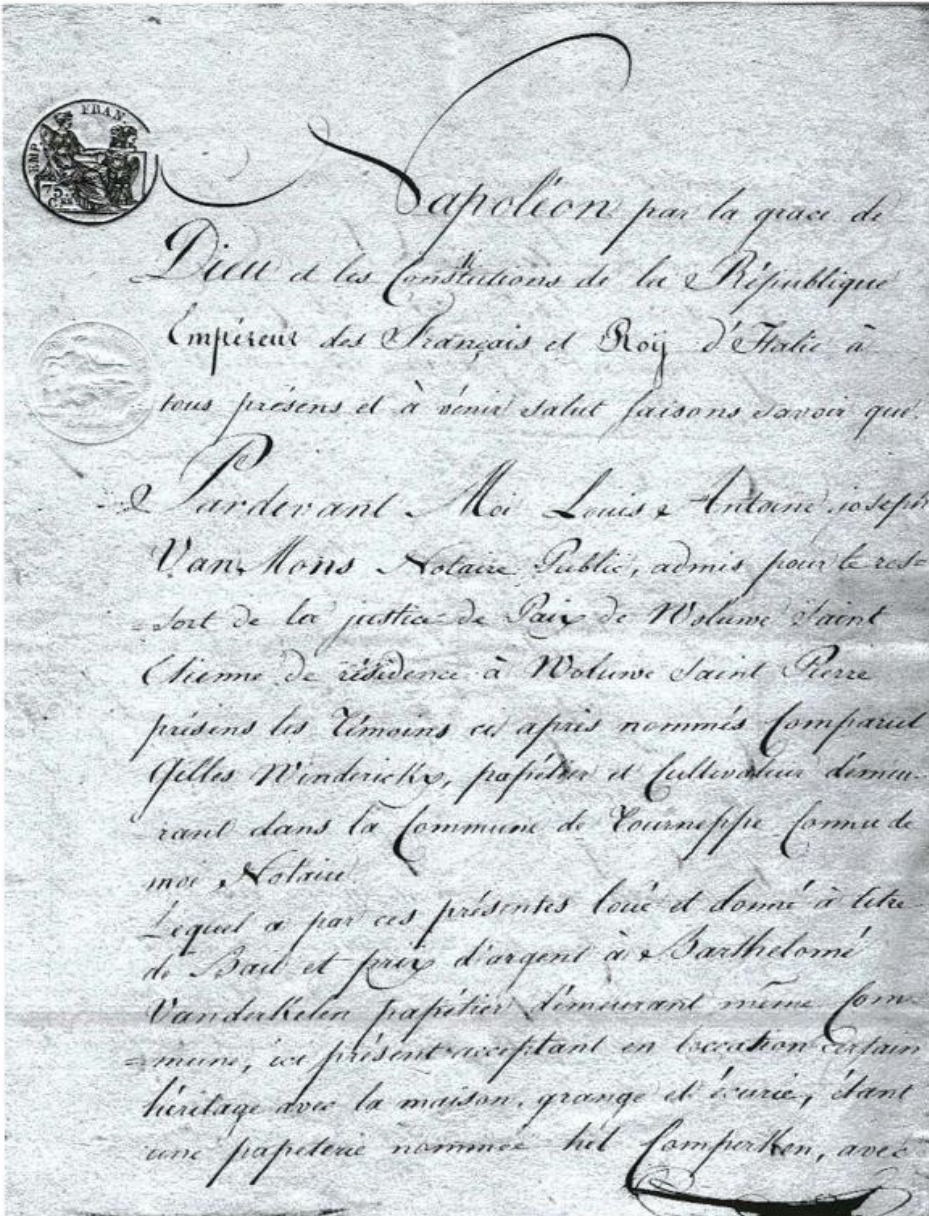 EMP. FRAN.
75 C.ES
Napoléon par la grace de
Dieu et les Constitutions de la République
Empéreur des Français et Roÿ d'Italie à
tous présens et à vénir salut faisons savoir que
Pardevant Moi Louis Antoine joseph
Van Mons Notaire Public, admis pour le res=
=sort de la justice de Paix de Woluwe Saint
Etienne de résidence à Woluwe Saint Pierre
présens les Témoins ci après nommés Comparut
Gilles Winderickx, papétier et Cultivateur démeu-
-rant dans la Commune de Tourneppe Connu de
moi Notaire
Lequel a par ces présentes loué et donné à titre
de Bail et prix d'argent à Barthelomé
VanderKelen papétier démeurant même Com-
=mune, ici présent acceptant en location certain
héritage avec la maison, grange et écurie, étant
une papeterie nommée hét ComperKen, avec